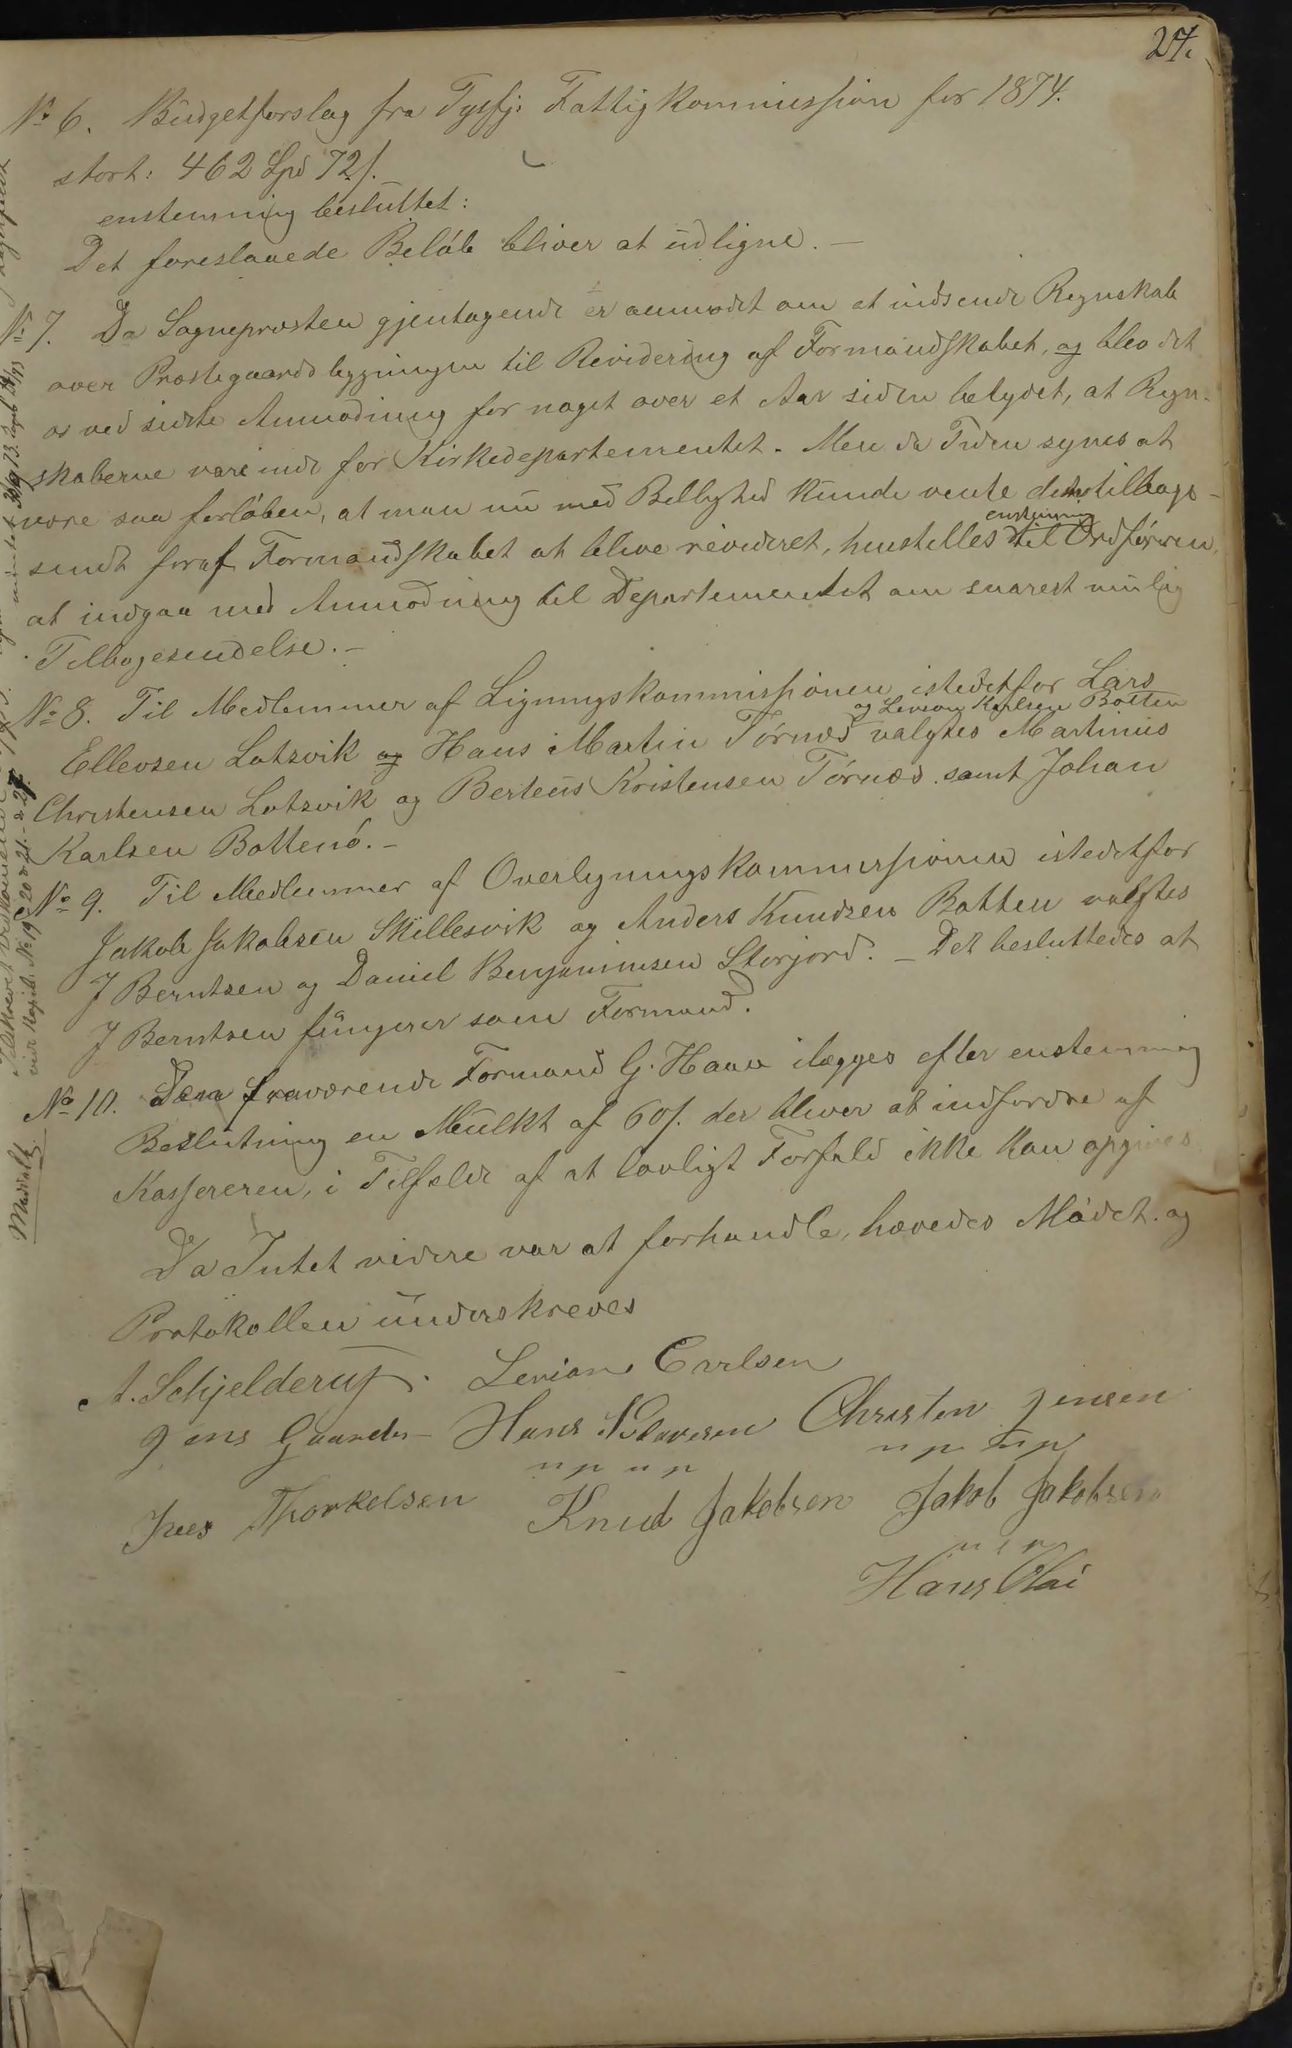 27.
No 6. Budgetforslag fra Tysfj: Fattigkommission for 1874.
stort: 462 Spd 72 s.
enstemmig besluttet:
Det foreslaaede Beløb bliver at udligne. —
No 7. Da Sognepresten gjentagende er anmodet om at indsende Regnskab
over Prestegaardsbygningen til Revidering af Formandskabet, og blev det
os ved sidste Anmodning for noget over et Aar siden betydet, at Regn-
skaberne vare inde for Kirkedepartementet. Men da Tiden synes at
være saa forløben, at man nu med Billighed kunde vente dem tilbage-
enstemmig
sendt for af Formandskabet at blive revideret, henstilles til Ordføreren,
at indgaa med Anmodning til Departementet om snarest mulig
Tilbagesendelse. —
No 8. Til Medlemmer af Ligningskommissionen istedetfor Lars
og Levion Karlsen Botten
Ellevsen Lotsvik og Hans Martin Tørnæs valgtes Martinus
Christensen Lotsvik og Berteus Kristensen Tørnæs samt Johan
Karlsen Bottenø. —
No 9. Til Medlemmer af Overligningskommissionen istedetfor
Jakob Jakobsen Skillesvik og Anders Knudsen Botten valgtes
J Berntsen og Daniel Benjaminsen Storjord. — Det besluttedes at
J Berntsen fungerer som Formand.
No 10. Den fraværende Formand G. Haau ilægges efter enstemmig
Beslutning en Mulkt af 60 s. der bliver at indfordre af
Kassereren, i Tilfælde af at lovligt Forfald ikke kan opgives
Da Intet videre var at forhandle, hævedes Mødet og
Protokollen underskreves
A. Schjelderup. Levion Carlsen
Jens Gaarder Hans Christen Jensen
Thorkelsen Knud Jakobsen Jakob Jakobsen
Hans Olai